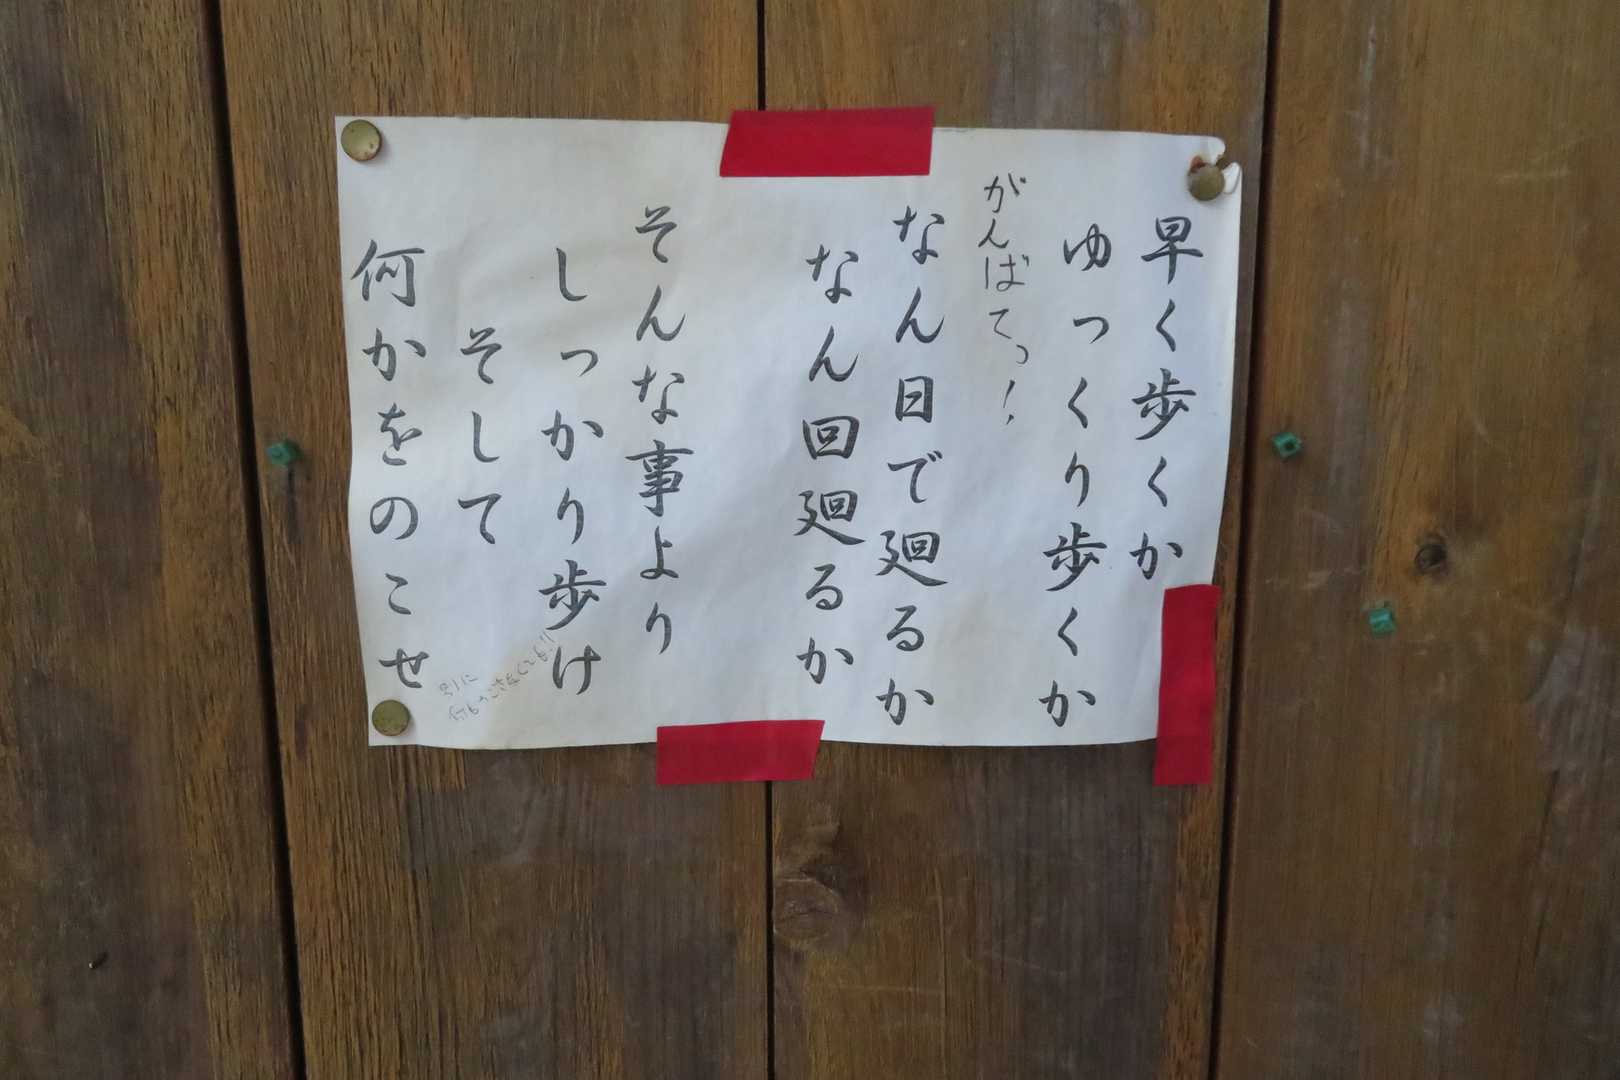 早く歩くか
ゆっくり歩くか
がんばてっ!
なん日で廻るか
なん回廻るか
そんな事より
しっかり歩け
そして
何かをのこせ